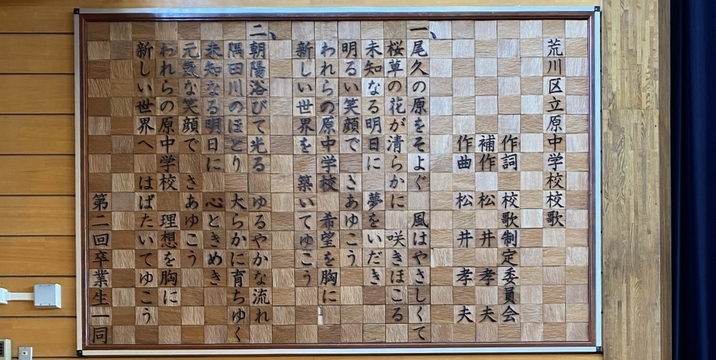 荒川区立原中学校校歌
作詞 校歌制定委員会
補作 松井孝夫
作曲 松井孝夫
一、
尾久の原をそよぐ 風はやさしくて
桜草の花が清らかに 咲きほこる
未知なる明日に 夢をいだき
明るい笑顔で さあゆこう
われらの原中学校 希望を胸に
新しい世界を 築いてゆこう
二、
朝陽浴びて光る ゆるやかな流れ
隅田川のほとり 大らかに育ちゆく
未知なる明日に 心ときめき
元気な笑顔で さあゆこう
われらの原中学校 理想を胸に
新しい世界へ はばたいてゆこう
第二回卒業生一同